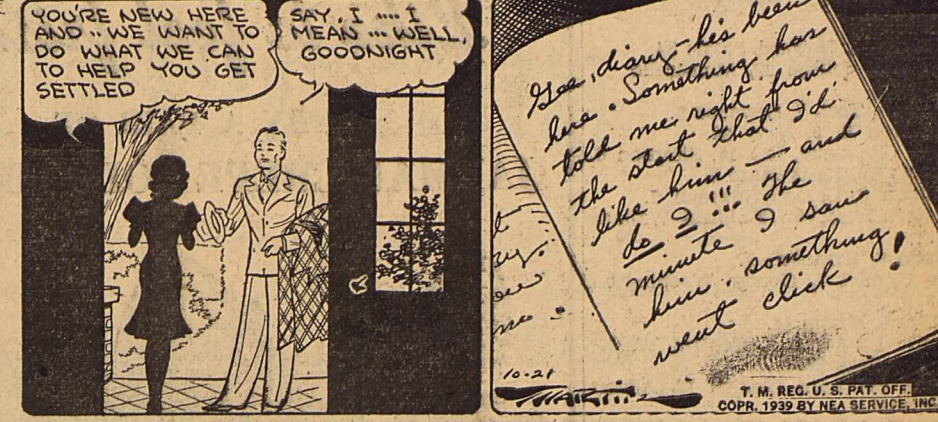 YOU'RE NEW HERE
AND .. WE WANT TO
DO WHAT WE CAN
TO HELP YOU GET
SETTLED
SAY, I .... I
MEAN ... WELL,
GOODNIGHT
Gee, diary - he's been
here. Something has
told me right from
the start that I'd
like him — and
do I !!! The
minute I saw
him, something
went click !
10-21
MARTIN
T. M. REG. U. S. PAT. OFF.
COPR. 1939 BY NEA SERVICE, INC.